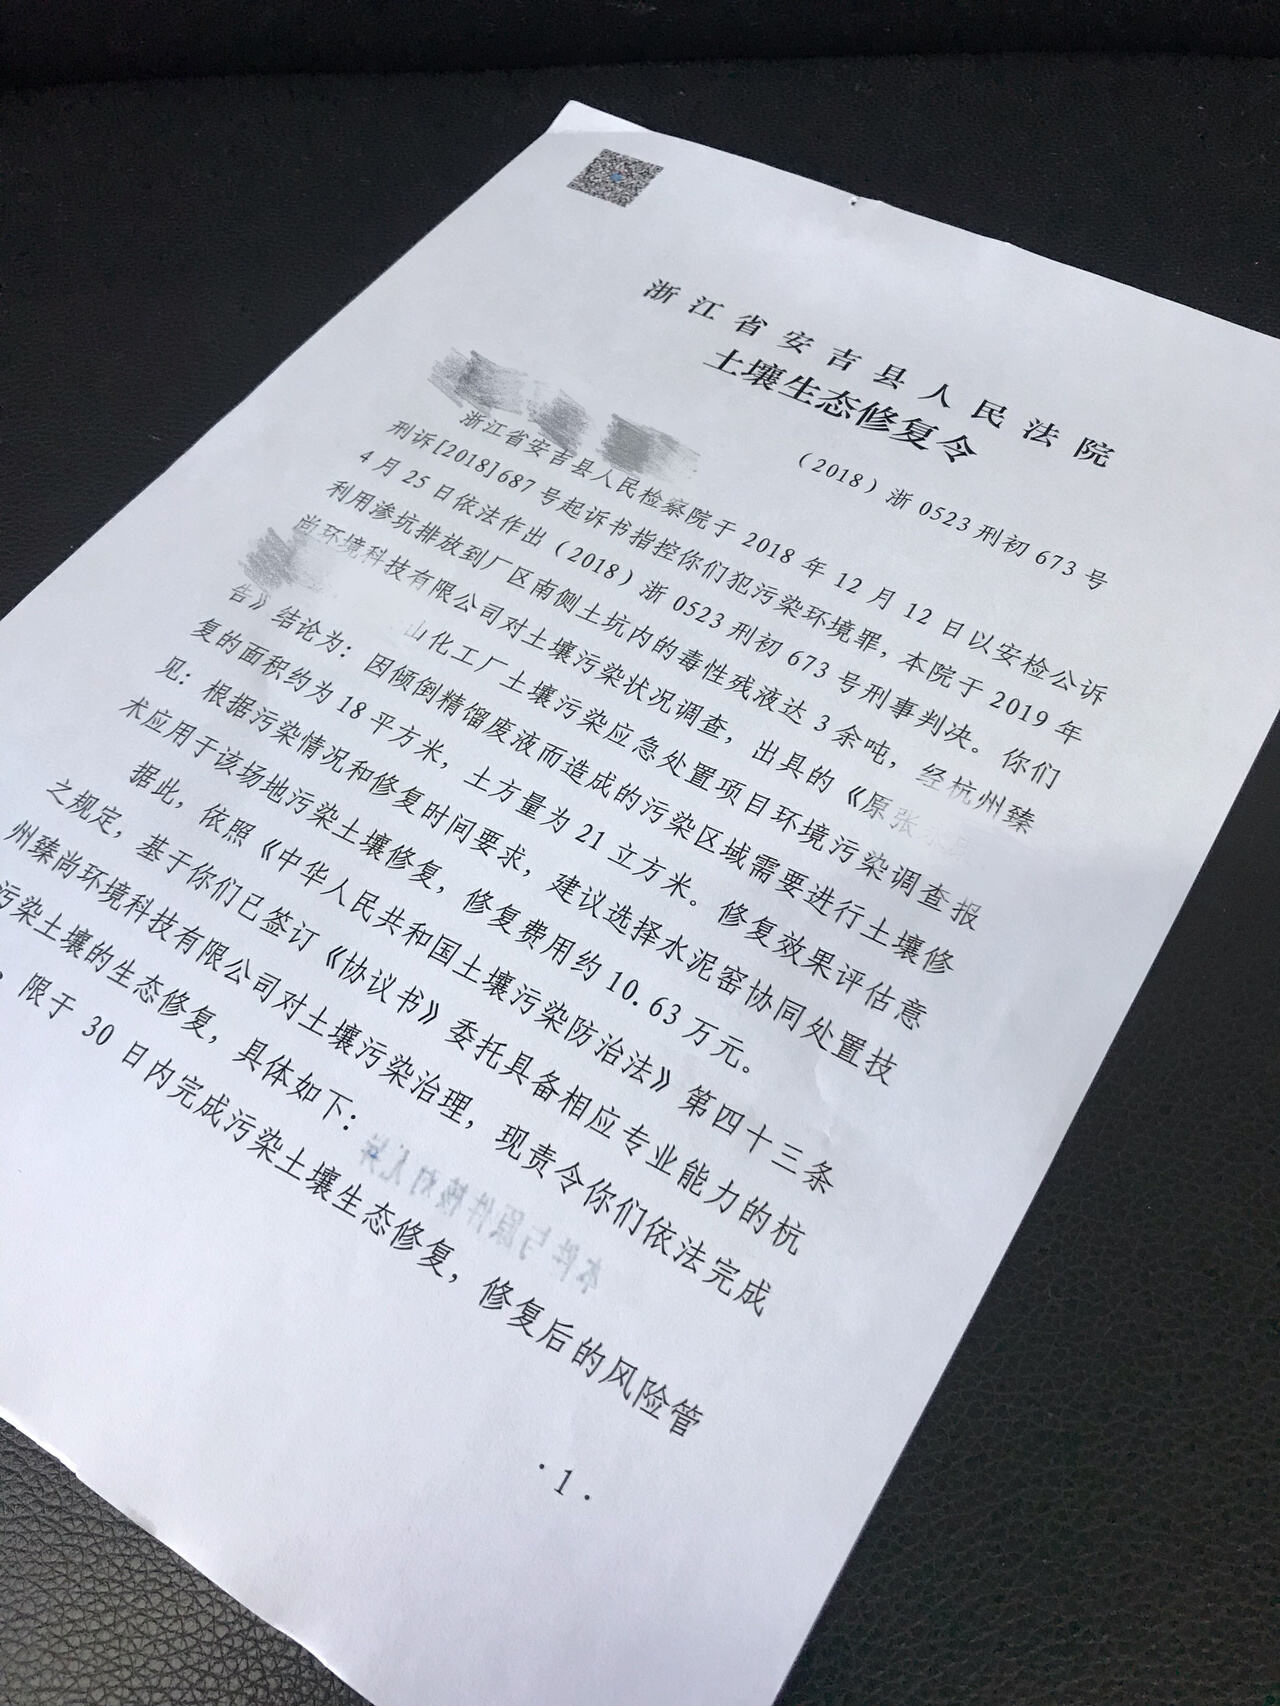 浙江省安吉县人民法院
土壤生态修复令
（2018）浙0523刑初673号
浙江省安吉县人民检察院于2018年12月12日以安检公诉
刑诉[2018]687号起诉书指控你们犯污染环境罪，本院于2019年
4月25日依法作出（2018）浙0523刑初673号刑事判决。你们
利用渗坑排放到厂区南侧土坑内的毒性残液达3余吨，经杭州臻
尚环境科技有限公司对土壤污染状况调查，出具的《原张
山化工厂土壤污染应急处置项目环境污染调查报
告》结论为：因倾倒精馏废液而造成的污染区域需要进行土壤修
复的面积约为18平方米，土方量为21立方米。修复效果评估意
见：根据污染情况和修复时间要求，建议选择水泥窑协同处置技
术应用于该场地污染土壤修复，修复费用约10.63万元。
据此，依照《中华人民共和国土壤污染防治法》第四十三条
之规定，基于你们已签订《协议书》委托具备相应专业能力的杭
州臻尚环境科技有限公司对土壤污染治理，现责令你们依法完成
污染土壤的生态修复，具体如下：
、限于30日内完成污染土壤生态修复，修复后的风险管
本件与原件核对无异
·1·